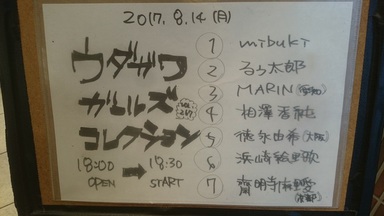 2017.8.14(月)
ウダガワ
ガールズ
コレクション
18:00 → 18:30
OPEN START
1 mibuki
2 るぅ太郎
3 MARIN
4 相澤
5 徳永由希(大阪)
6 浜崎
7 齋明寺